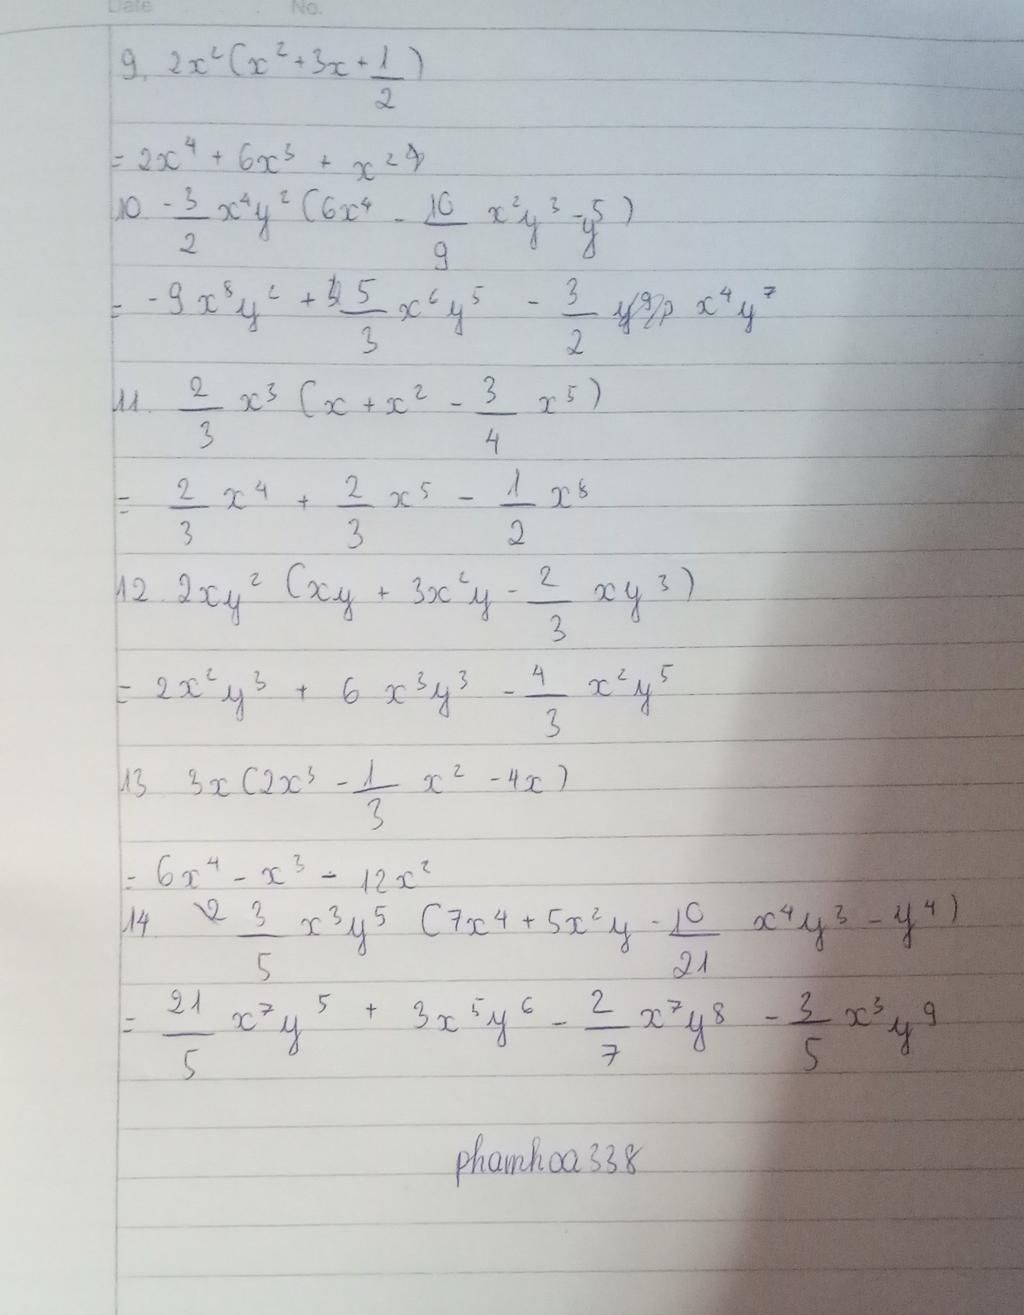 Date No.
9. 2x²(x² + 3x + 1/2)
= 2x⁴ + 6x³ + x²
10 -3/2 x⁴y² (6x⁴ - 10/9 x²y³ - y⁵)
= -9x⁸y² + 5/3 x⁶y⁵ - 3/2 x⁴y⁷
11. 2/3 x³ (x + x² - 3/4 x⁵)
= 2/3 x⁴ + 2/3 x⁵ - 1/2 x⁸
12. 2xy² (xy + 3x²y - 2/3 xy³)
= 2x²y³ + 6 x³y³ - 4/3 x²y⁵
13 3x(2x³ - 1/3 x² - 4x)
= 6x⁴ - x³ - 12x²
14 3/5 x³y⁵ (7x⁴ + 5x²y - 10/21 x⁴y³ - y⁴)
= 21/5 x⁷y⁵ + 3x⁵y⁶ - 2/7 x⁷y⁸ - 3/5 x³y⁹
phamhoa338